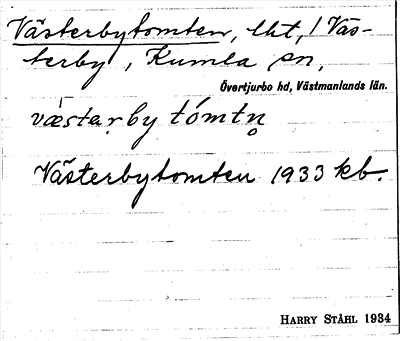 Västerbytomten, lht, / Väs-
terby, Kumla sn,
Övertjurbo hd, Västmanlands län.
væ̀starby tómtn̥
Västerbytomten 1933 kb.
HARRY STÅHL 1934